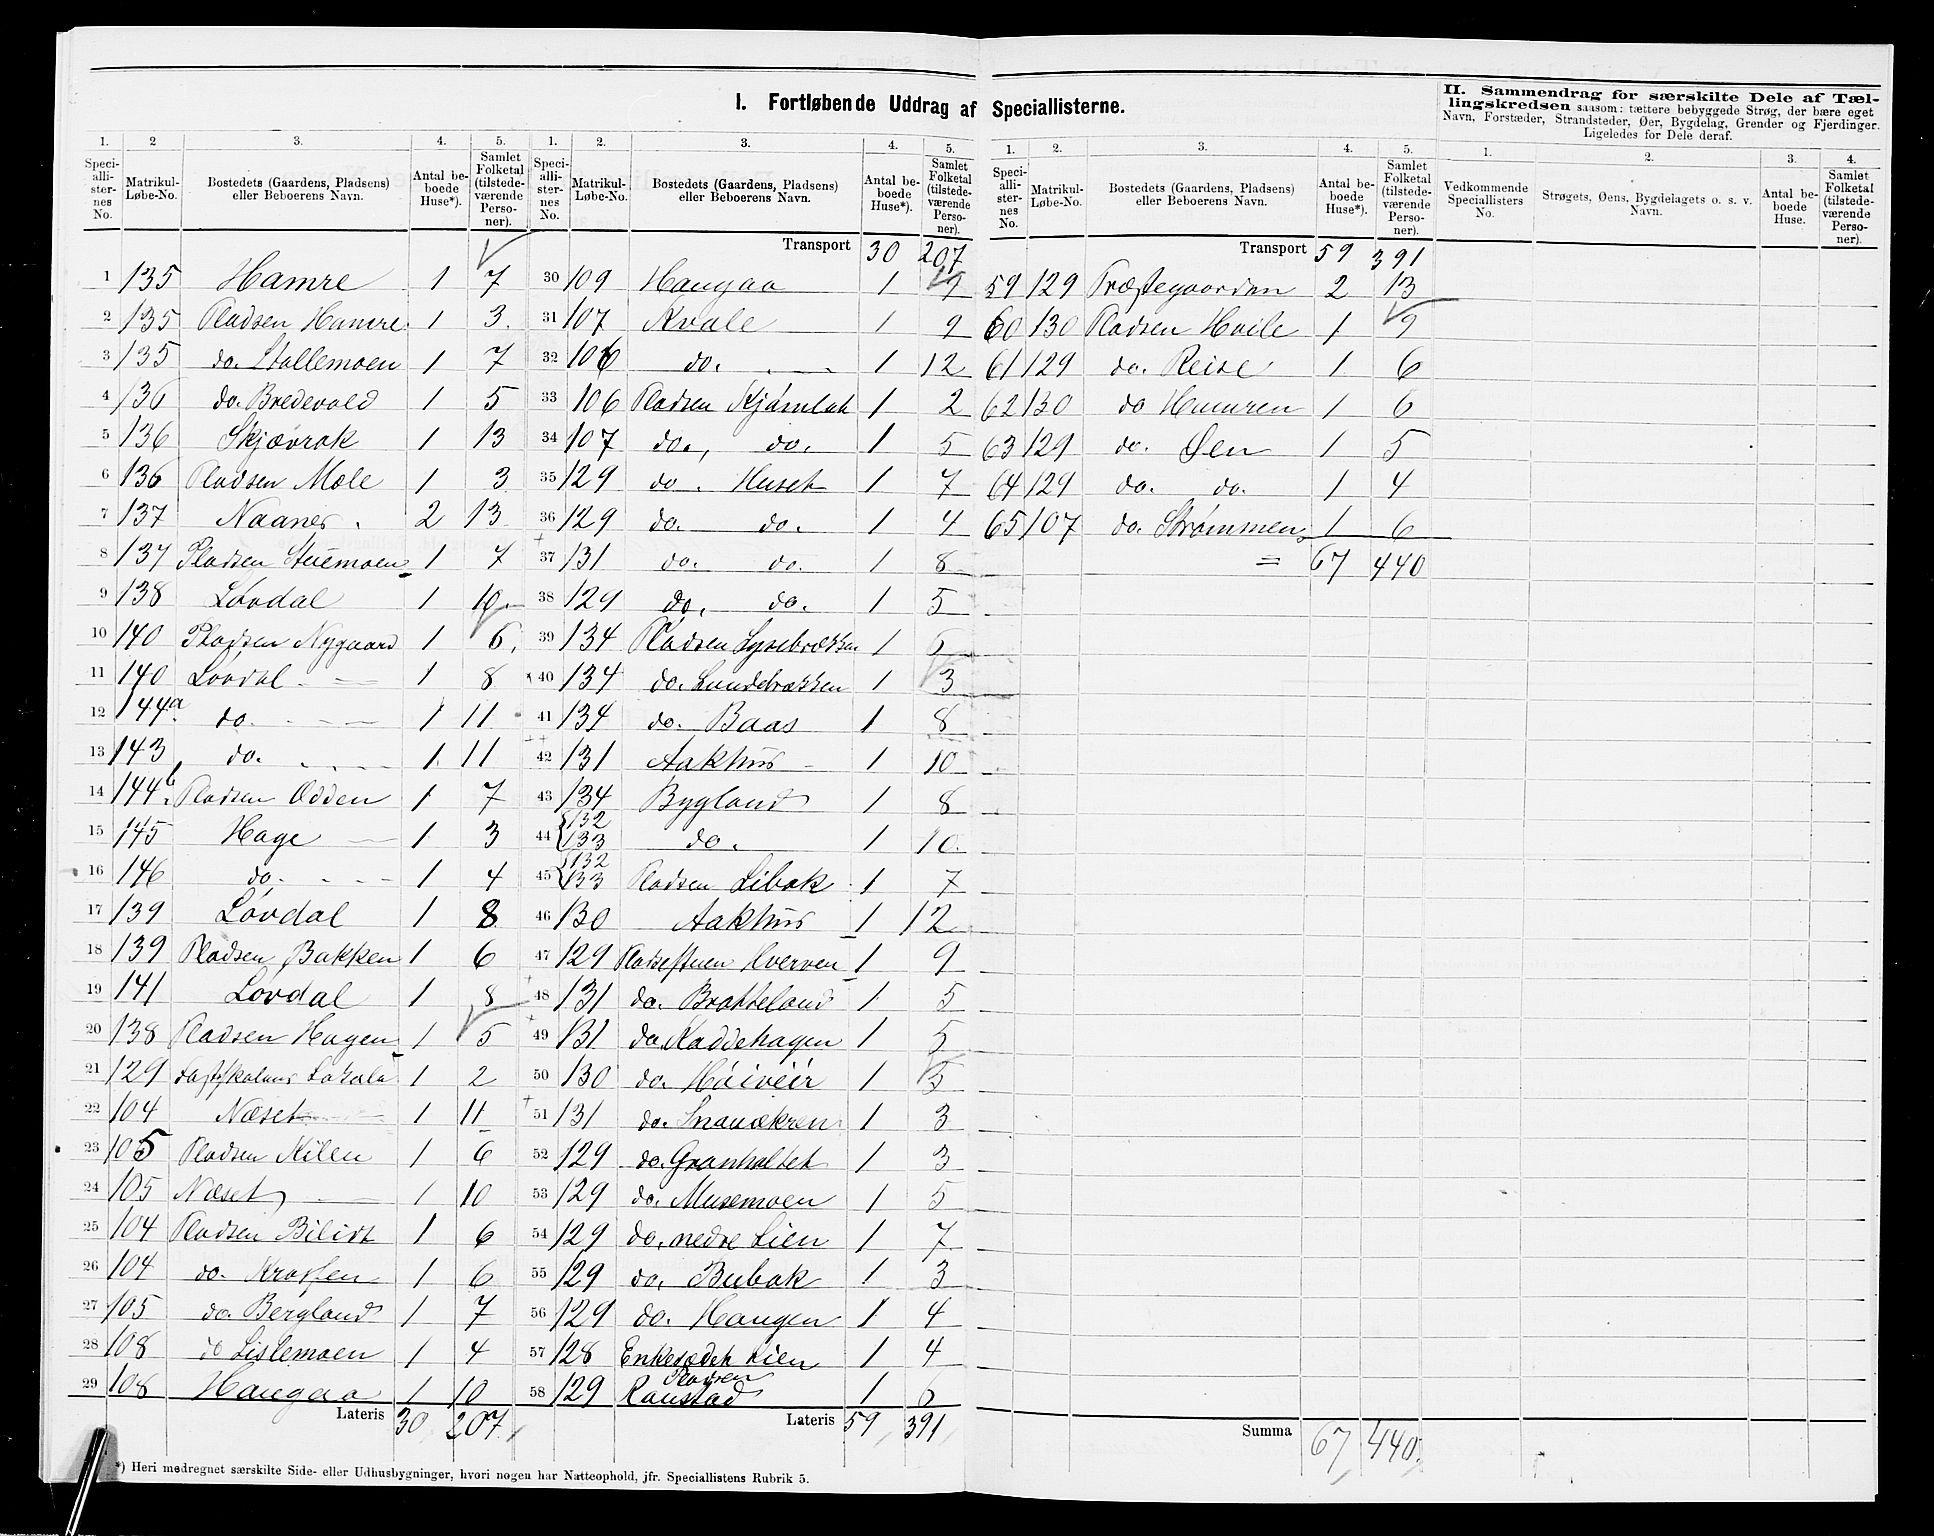 I. Fortløbende Uddrag af Speciallisterne.
1. 2 3. 4. 5.
Speci-alli-ster-nes No. Matrikul-Løbe-No. Bostedets (Gaardens, Pladsens) eller Beboerens Navn. Antal be-boede Huse*). Samlet Folketal (tilstede-værende Perso-ner).
1 135 Hamre 1 7
2 135 Pladsen Hamre 1 3
3 135 do. Stallemoen 1 7
4 136 do. Bredevold 1 5
5 136 Skjævrak 1 13
6 136 Pladsen Mole 1 3
7 137 Naanes 2 13
8 137 Pladsen Stuemoen 1 7
9 138 Lovdal 1 10
10 140 Pladsen Nygaard 1 6
11 140 Lovdal 1 8
12 144a do. 1 11
13 143 do. 1 11
14 144b Pladsen Odden 1 7
15 145 Hage 1 3
16 146 do. 1 4
17 139 Løvdal 1 8
18 139 Pladsen Bakken 1 6
19 141 Lovdal 1 8
20 138 Pladsen Hagen 1 5
21 129 Fastskolens Lokale 1 2
22 104 Næset 1 11
23 105 Pladsen Kilen 1 6
24 105 Næset 1 10
25 104 Pladsen Bilidt 1 6
26 104 do. 1 6
27 105 do. Bergland 1 7
28 108 do Lislemoen 1 4
29 108 Haugaa 1 10
Lateris 30 207
1. 2. 3. 4. 5.
Speci-alli-ster-nes No. Matrikul-Løbe-No. Bostedets (Gaardens, Pladsens) eller Beboerens Navn. Antal be-boede Huse*). Samlet Folketal (tilstede-værende Perso-ner).
Transport 30 207
30 109 Haugaa 1 9
31 107 Kvale 1 9
32 106 do. 1 12
33 106 Pladsen 1 2
34 107 do., do. 1 5
35 129 do. Huset 1 7
36 129 do. do. 1 4
37 131 do. do. 1 8
38 129 do. do. 1 5
39 134 Pladsen Lysebrækken 1 5
40 134 do. Lundebrækken 1 3
41 134 do. Baas 1 8
42 131 Aakhus 1 10
43 134 Bygland 1 8
44 132 133 do. 1 10
45 132 133 Pladsen Libak 1 7
46 130 Aakhus 1 12
47 129 Pladsestuen Hverven 1 9
48 131 do. Bratteland 1 5
49 131 do. Kaddehagen 1 5
50 130 do. 1 5
51 131 do. Snauækren 1 3
52 129 do. Granholtet 1 3
53 129 do. Musemoen 1 5
54 129 do. nedre Lien 1 7
55 129 do. Bubak 1 3
56 129 do. Haugen 1 4
57 128 Enkesædet Lien 1 4
58 129 Pladsen Raustad 1 6
Lateris 59 391
1. 2. 3. 4. 5.
Speci-alli-ster-nes No. Matrikul-Løbe-No. Bostedets (Gaardens, Pladsens) eller Beboerens Navn. Antal be-boede Huse*). Samlet Folketal (tilstede-værende Perso-ner).
Transport 59 391
59 129 Præstegaarden 2 13
60 130 Pladsen Hvile 1 9
61 129 do. Reise 1 6
62 130 do Hamren 1 6
63 129 do. Øen 1 5
64 129 do. do. 1 4
65 107 do. Strømmen 1 6
= 67 440
Summa 67 440
II. Sammendrag for særskilte Dele af Tæl-
lingskredsen saasom: tættere bebyggede Strøg, der bære eget
Navn, Forstæder, Strandsteder, Øer, Bygdelag, Grender og Fjerdinger.
Ligeledes for Dele deraf.
1. 2. 3. 4.
Vedkommende Speciallisters No. Strøgets, Øens, Bygdelagets o. s. v. Navn. Antal be-boede Huse. Samlet Folketal (tilstede-værende Perso-ner).
*) Heri medregnet særskilte Side- eller Udhusbygninger, hvori nogen har Natteophold, jfr. Speciallistens Rubrik 5.